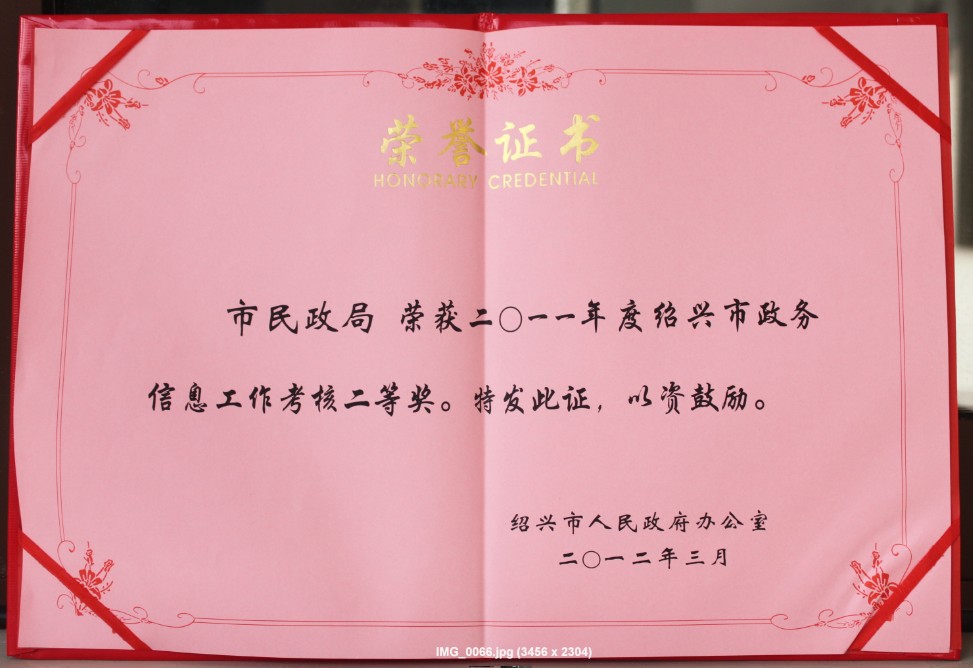 荣誉证书
HONORARY CREDENTIAL
市民政局 荣获二〇一一年度绍兴市政务
信息工作考核二等奖。特发此证，以资鼓励。
绍兴市人民政府办公室
二〇一二年三月
IMG_0066.jpg (3456 x 2304)